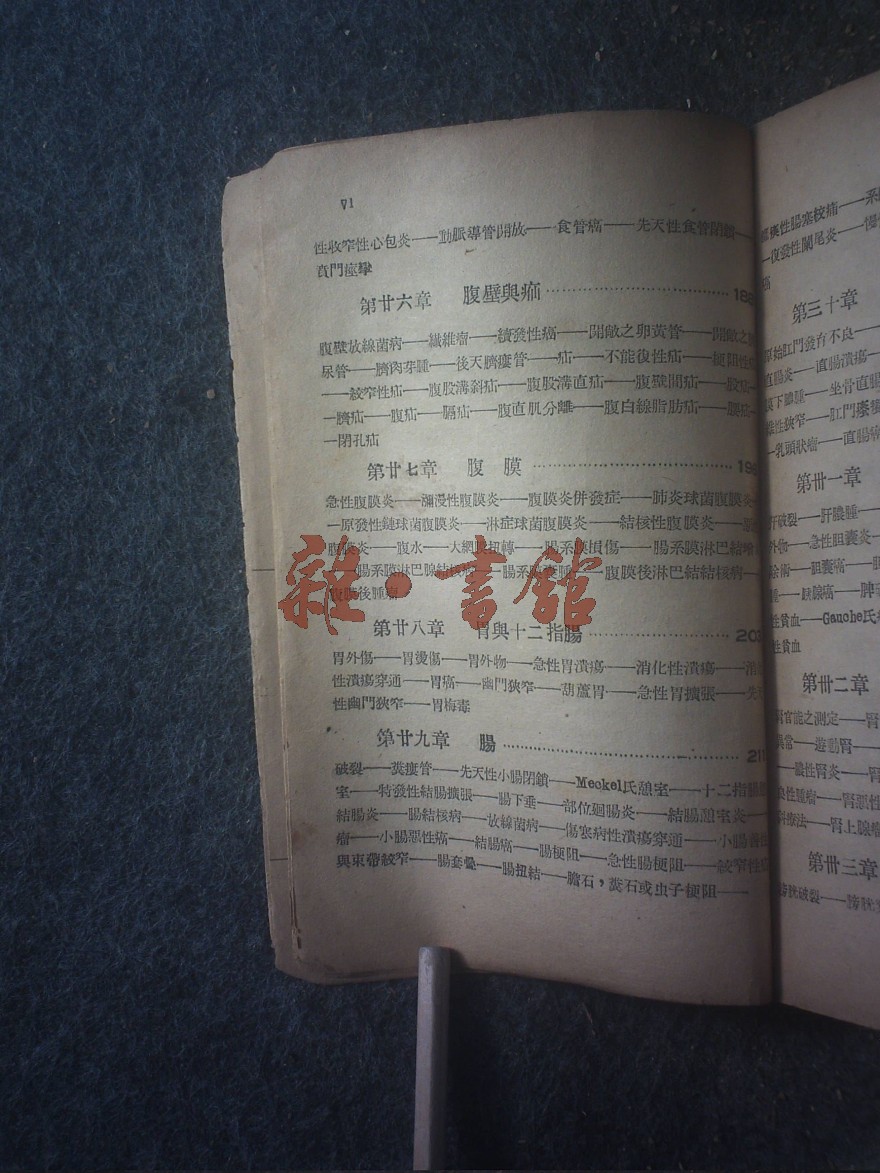 VI
性收窄性心包炎——動脈導管開放——食管癌——先天性食管閉鎖
賁門痙攣
第廿六章 腹壁與疝 188
腹壁放線菌病——纖維瘤——續發性癌——開敞之卵黃管——開敞之
尿管——臍肉芽腫——後天臍瘻管——疝——不能復性疝——梗阻性疝
——絞窄性疝——腹股溝斜疝——腹股溝直疝——腹壁間疝——股疝
—臍疝——腹疝——膈疝——腹直肌分離——腹白線脂肪疝——腰疝
—閉孔疝
第廿七章 腹膜 196
急性腹膜炎——瀰漫性腹膜炎——腹膜炎併發症——肺炎球菌腹膜炎
—原發性鏈球菌腹膜炎——淋症球菌腹膜炎——結核性腹膜炎——
腹膜炎——腹水——大網膜扭轉——腸系膜損傷——腸系膜淋巴結
腸系膜淋巴腺結核——腸系膜囊腫——腹膜後淋巴結結核病——
腹膜後腫瘤
雜·書館
第廿八章 胃與十二指腸 203
胃外傷——胃燙傷——胃外物——急性胃潰瘍——消化性潰瘍——消
性潰瘍穿通——胃癌——幽門狹窄——葫蘆胃——急性胃擴張——先
性幽門狹窄——胃梅毒
第廿九章 腸 211
破裂——糞瘻管——先天性小腸閉鎖——Meckel氏憩室——十二指腸
室——特發性結腸擴張——腸下垂——部位廻腸炎——結腸憩室炎——
結腸炎——腸結核病——放線菌病——傷寒病性潰瘍穿通——小腸
瘤——小腸惡性瘤——結腸癌——腸梗阻——急性腸梗阻——絞窄性
與束帶絞窄——腸套疊——腸扭結——膽石，糞石或虫子梗阻——
性腸塞梗痏——系
—復發性闌尾炎——慢
癌
第三十章
原始肛門發育不良——
直腸炎——直腸潰瘍——
膜下膿腫——坐骨直腸
性狹窄——肛門瘙癢
—乳頭狀瘤——直腸癌
第卅一章
肝破裂——肝膿腫——
外物——急性胆囊炎—
除術——胆囊癌——胆
腫——胰腺癌——脾
性貧血——Gauche氏
性貧血
第卅二章
腎官能之測定——腎
異常——遊動腎——
——膿性腎炎——腎
良性腫瘤——腎惡性
科療法——腎上腺瘤
第卅三章
膀胱破裂——膀胱